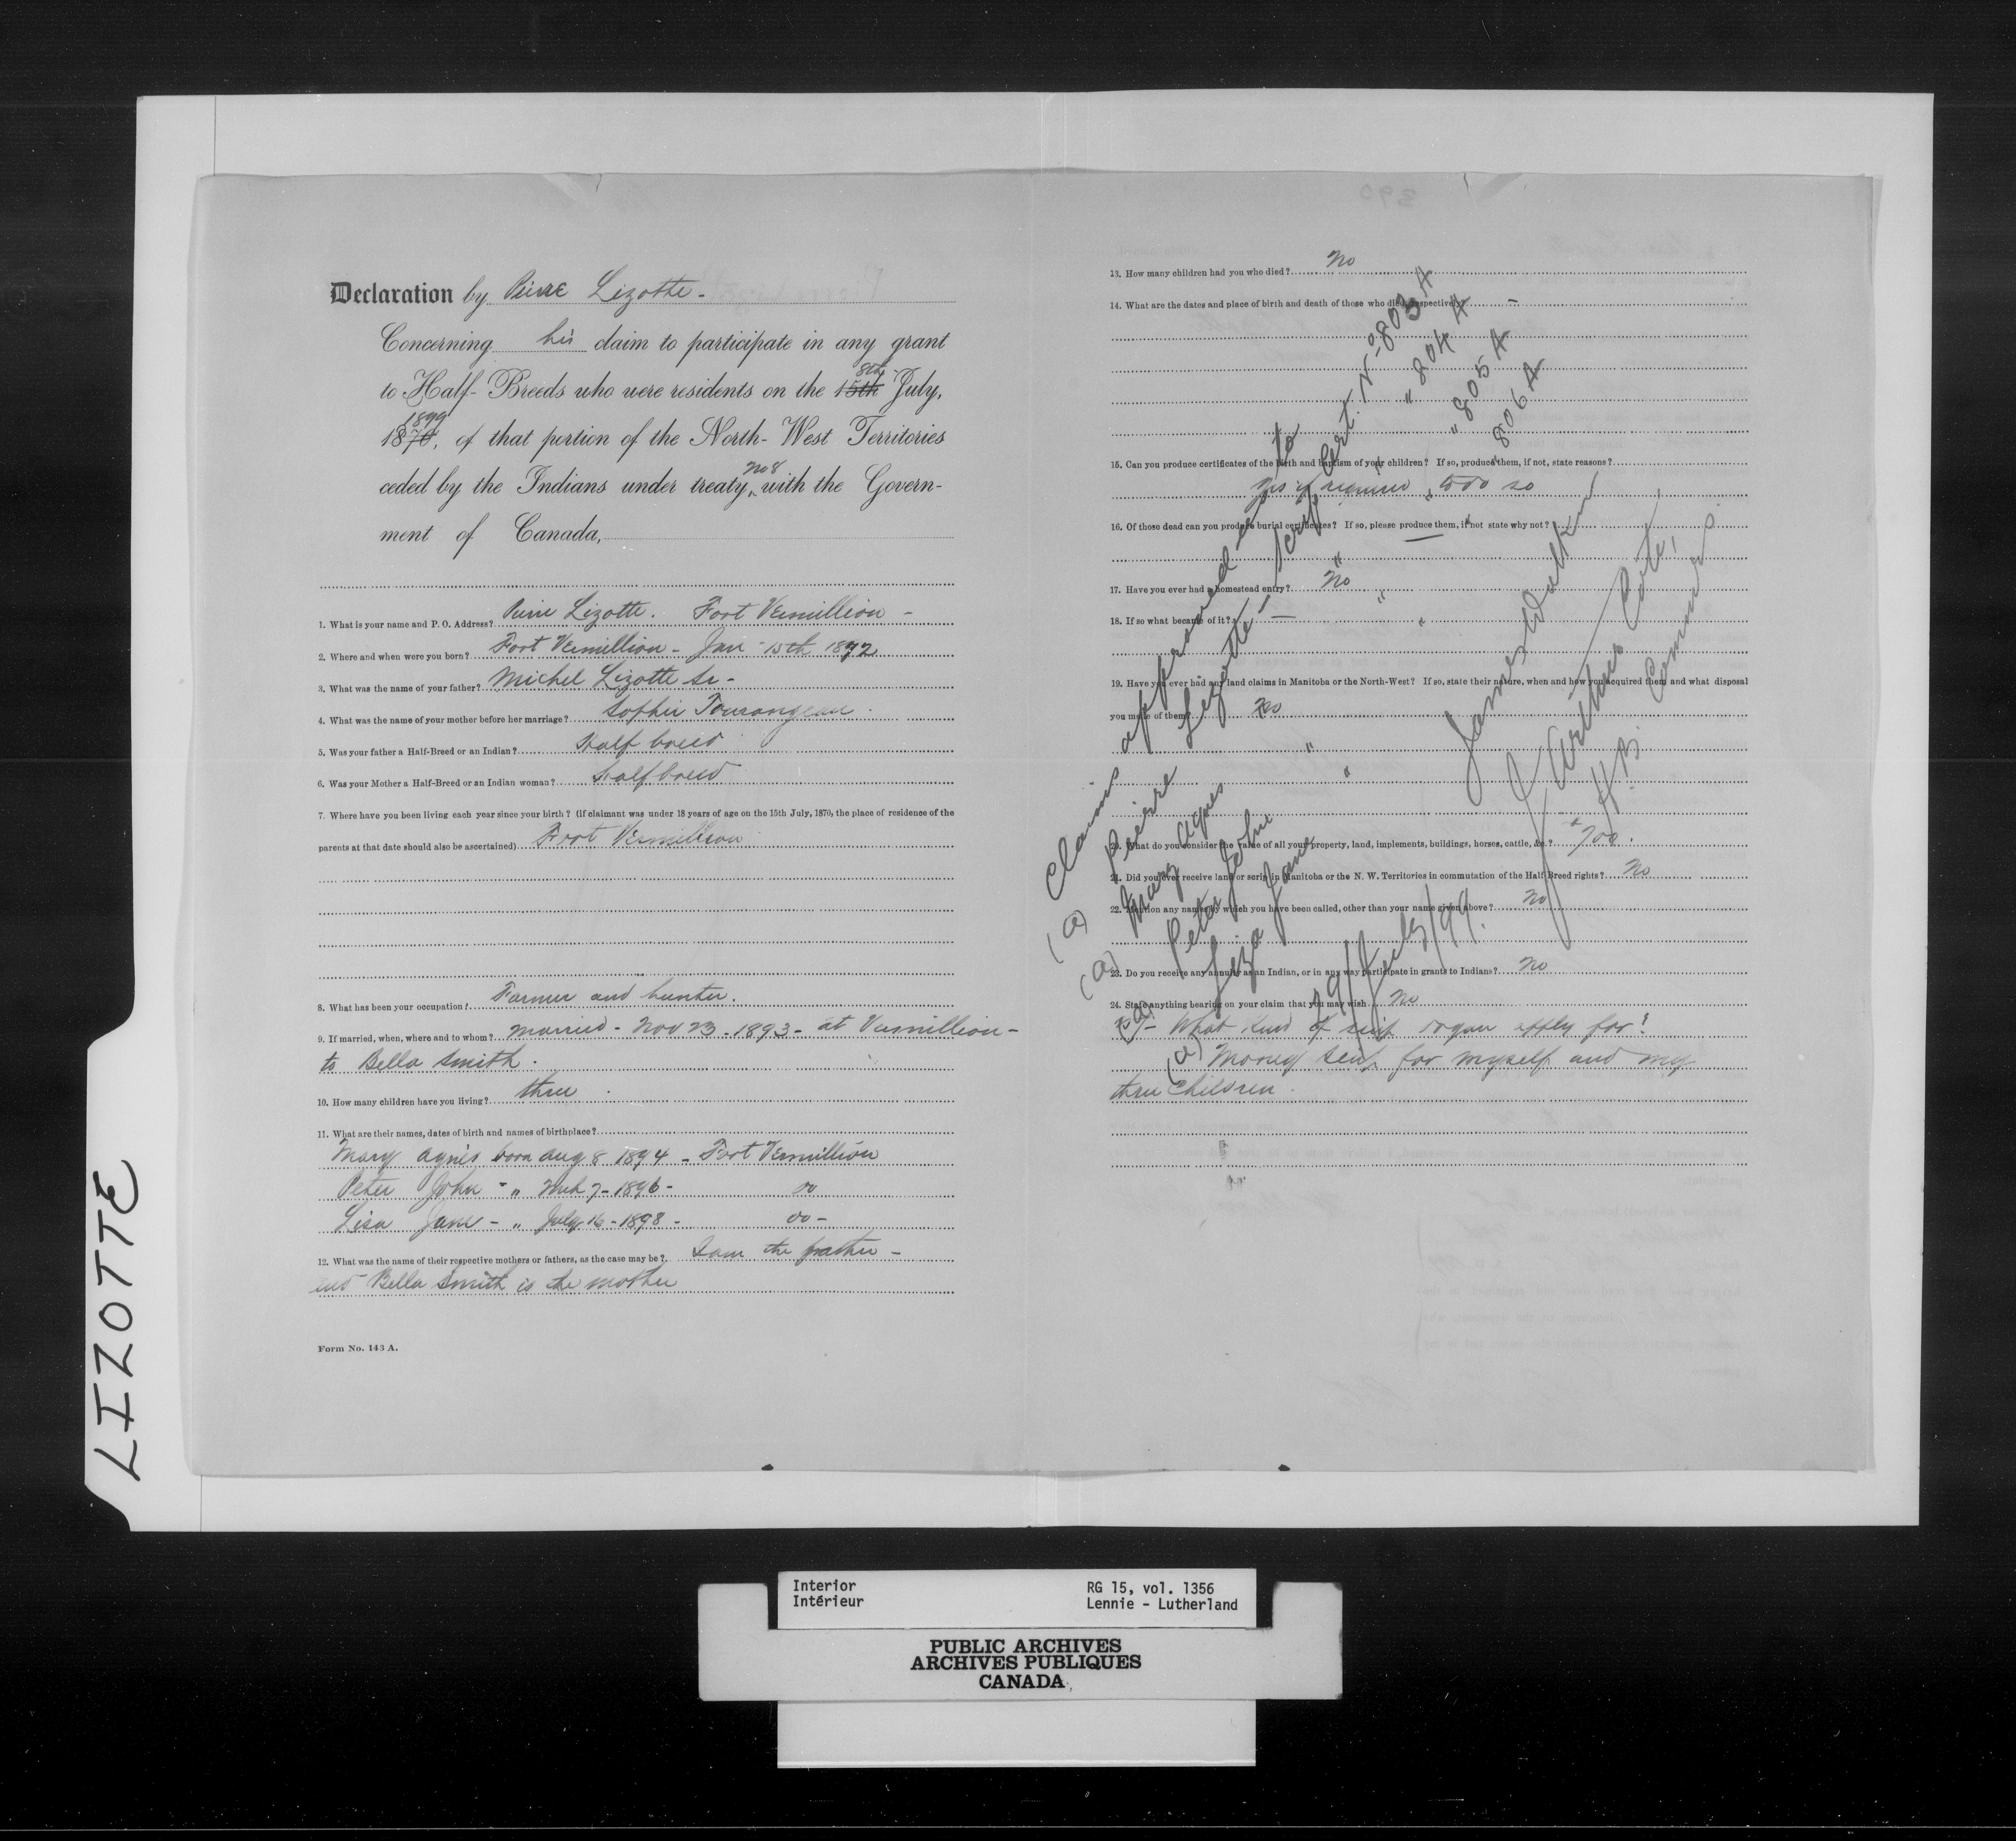 Declaration by Pierre Lizotte -
Concerning his claim to participate in any grant
to Half-Breeds who were residents on the 15th 8th July,
1870, 1899 of that portion of the North-West Territories
ceded by the Indians under treaty, No 8 with the Govern-
ment of Canada,
1. What is your name and P. O. Address? Pierre Lizotte. Fort Vermillion -
2. Where and when were you born? Fort Vermillion - Jan 15th 1872
3. What was the name of your father? Michel Lizotte Sr -
4. What was the name of your mother before her marriage? Sophie Tourangeau.
5. Was your father a Half-Breed or an Indian? Half breed
6. Was your Mother a Half-Breed or an Indian woman? Half breed
7. Where have you been living each year since your birth? (if claimant was under 18 years of age on the 15th July, 1870, the place of residence of the
parents at that date should also be ascertained) Fort Vermillion
8. What has been your occupation? Farmer and hunter.
9. If married, when, where and to whom? Married - Nov 23 - 1893 - at Vermillion -
to Bella Smith.
10. How many children have you living? three
11. What are their names, dates of birth and names of birthplace?
Mary Agnes born Aug 8 1894 - Fort Vermillion
Peter John - " Mch 7 - 1896 - do
Lisa Jane - " July 16 - 1898 - do -
12. What was the name of their respective mothers or fathers, as the case may be? I am the father -
and Bella Smith is the mother
Form No. 143 A.
13. How many children had you who died? No
14. What are the dates and place of birth and death of those who died, respectively? -
15. Can you produce certificates of the birth and baptism of your children? If so, produce them, if not, state reasons?
Yes if required to do so
16. Of those dead can you produce burial certificates? If so, please produce them, if not state why not? —
17. Have you ever had a homestead entry? No
18. If so what became of it? —
19. Have you ever had any land claims in Manitoba or the North-West? If so, state their nature, when and how you acquired them and what disposal
you made of them? No
20. What do you consider the value of all your property, land, implements, buildings, horses, cattle, &c.? $700.
21. Did you ever receive land or scrip in Manitoba or the N. W. Territories in commutation of the Half Breed rights? No
22. Mention any names by which you have been called, other than your name given above? No
23. Do you receive any annuity as an Indian, or in any way participate in grants to Indians? No
24. State anything bearing on your claim that you may wish. No
25 - What kind of scrip do you apply for?
Money scrip for myself and my
three children.
Claims approved as to
(a) Pierre Lizotte - Scrip Cert. No 803 A
(a) Mary Agnes " " " " 804 A
(a) Peter John " " " " 805 A
(a) Liza Jane " " " " 806 A
19/July/99.
James Walker
J Arthur Coté,
H. B. Commrs.
LIZOTTE
Interior
Intérieur
RG 15, vol. 1356
Lennie - Lutherland
PUBLIC ARCHIVES
ARCHIVES PUBLIQUES
CANADA